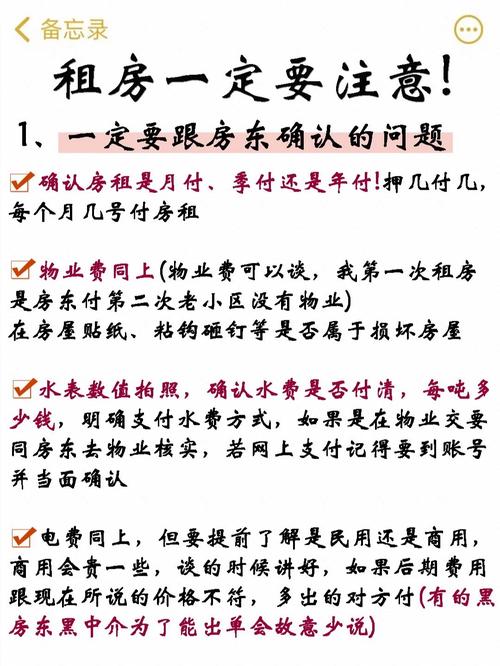 备忘录
租房一定要注意!
1、一定要跟房东确认的问题
确认房租是月付、季付还是年付!押几付几,
每个月几号付房租
物业费同上(物业费可以谈,我第一次租房
是房东付第二次老小区没有物业)
在房屋贴纸、粘钩砸钉等是否属于损坏房屋
水表数值拍照,确认水费是否付清,每吨多
少钱,明确支付水费方式,如果是在物业交要
同房东去物业核实,若网上支付记得要到账号
并当面确认
电费同上,但要提前了解是民用还是商用,
商用会贵一些,谈的时候讲好,如果后期费用
跟现在所说的价格不符,多出的对方付(有的黑
房东黑中介为了能出单会故意少说)